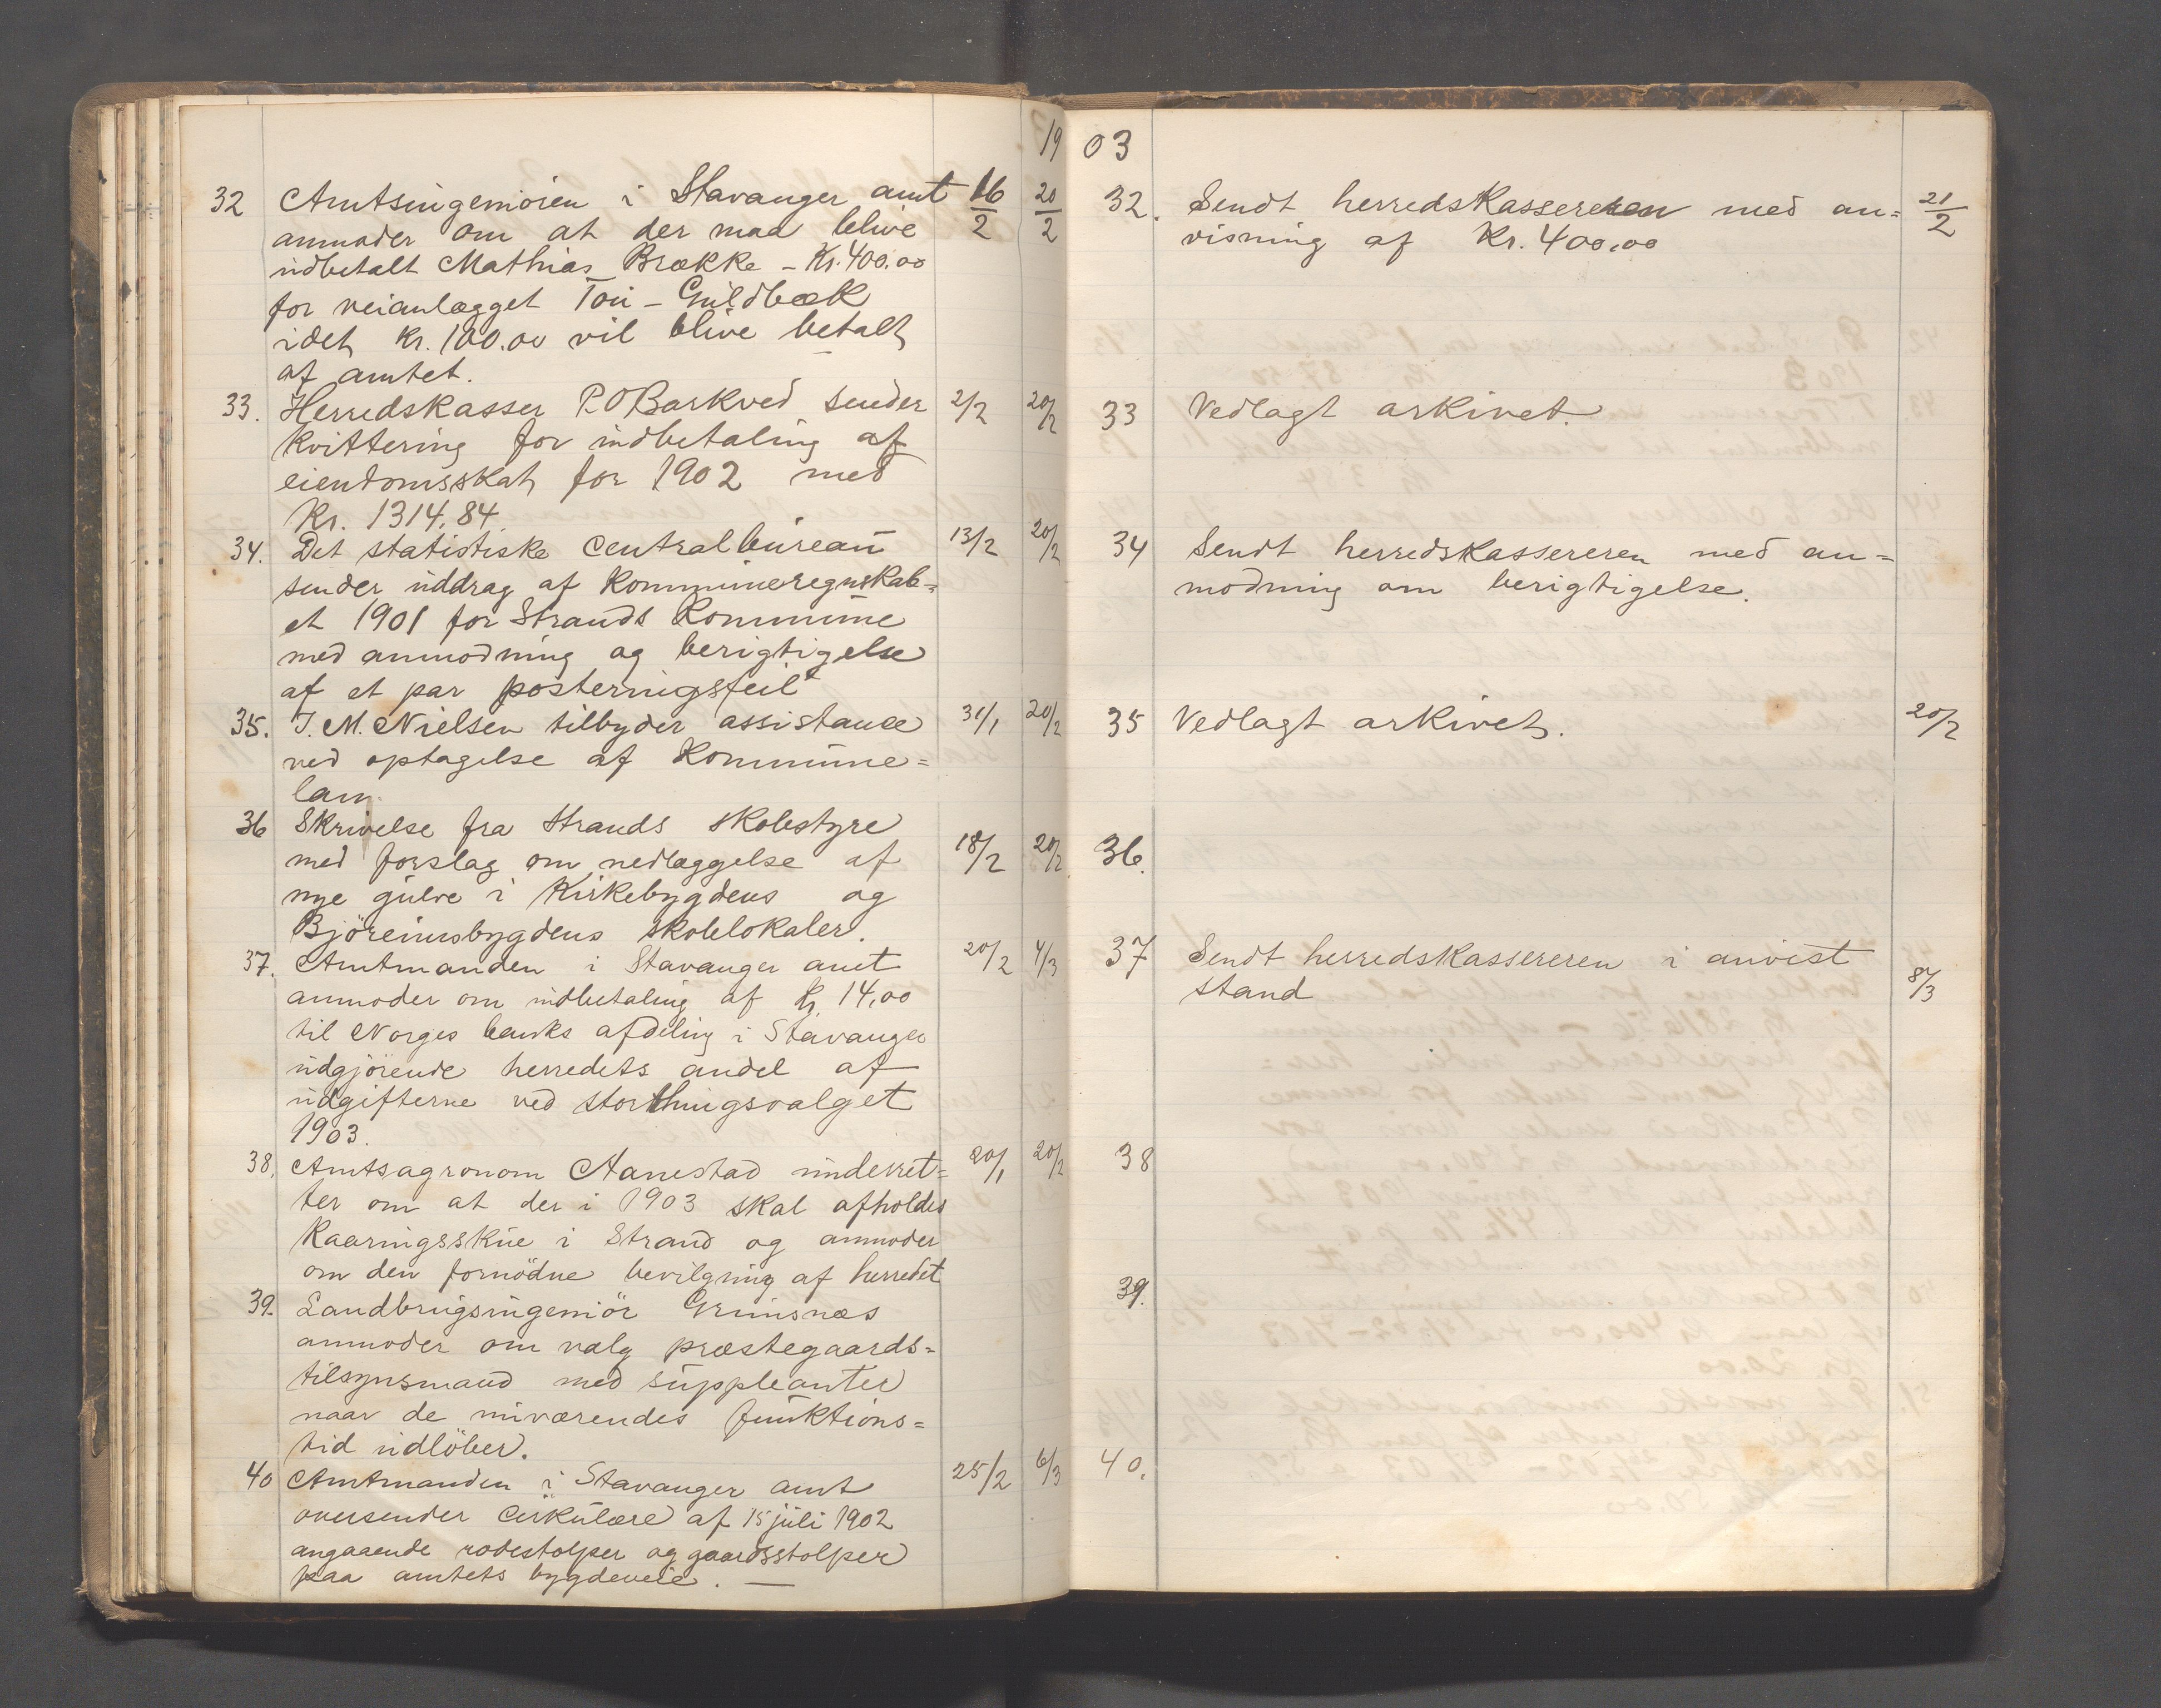 1903
32 Amtsingeniøren i Stavanger amt 16/2 20/2
anmoder om at der maa blive
udbetalt Mathias Brække - Kr. 400.00
for veianlægget Tou - Guldbæk
idet Kr. 100.00 vil blive betalt
af amtet.
33. Herredskasser P. O Barkved sender 2/2 20/2
kvittering for indbetaling af
eiendomsskat for 1902 med
Kr. 1314.84.
34. Det statistiske centralbureau 13/2 20/2
sender uddrag af kommuneregnskab=
et 1901 for Strands kommune
med anmodning og berigtigelse
af et par posteringsfeil
35. J. M. Nielsen tilbyder assistance 31/1 20/2
ved optagelse af kommune=
laan.
36 Skrivelse fra Strands skolestyre
med forslag om nedlæggelse af 18/2 20/2
nye gulve i Kirkebygdens og
Björeimsbygdens skolelokaler.
37. Amtmanden i Stavanger amt 20/2 4/3
anmoder om indbetaling af Kr. 14,00
til Norges banks afdeling i Stavanger
udgjörende herredets andel af
udgifterne ved storthingsvalget
1903.
38. Amtsagronom Aanestad underret= 20/1 20/2
ter om at der i 1903 skal afholdes
kaaringsskue i Strand og anmoder
om den fornödne bevilgning af herredet
39. Landbrugsingeniör Grimsnæs
anmoder om valg præstegaards=
tilsynsmand med suppleanter
naar de nuværendes funktions=
tid udlöber.
40 Amtmanden i Stavanger amt 25/2 6/3
oversender cirkulære af 15 juli 1902
angaaende rodestolper og gaardsstolper
paa amtets bygdeveie. —
32. Sendt herredskassereren med an= 21/2
visning af Kr. 400,00
33 Vedlagt arkivet.
34 Sendt herredskassereren med an=
modning om berigtigelse.
35 Vedlagt arkivet. 20/2
36.
37 Sendt herredskassereren i anvist
stand 8/3
38
39.
40.